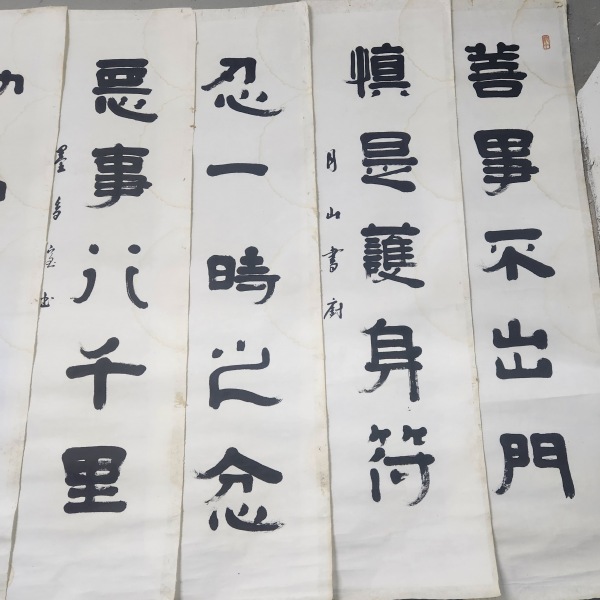 善事不出門
慎是護身符
月山書廚
忍一時之忿
惡事行千里
墨香室